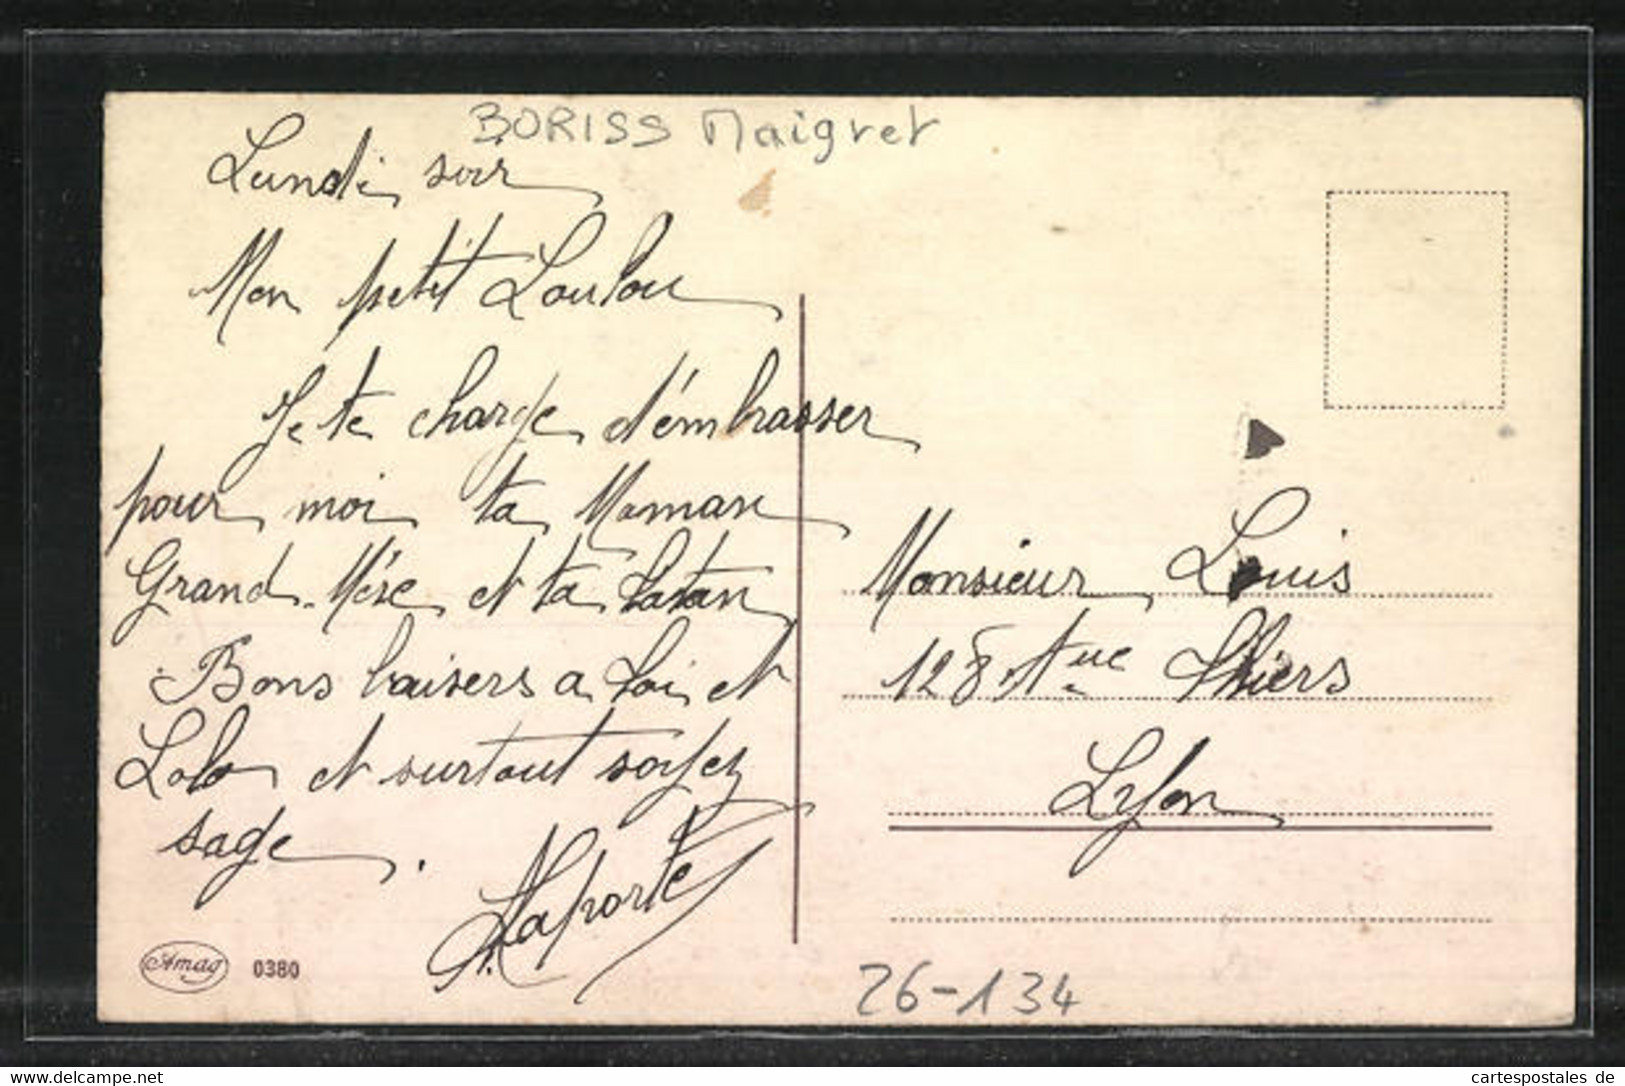 BORISS Maigret
Lundi soir
Mon petit Loulou
Je te charge d'émbrasser
pour moi ta Maman
Grand-Mére et ta Tatan
Bons baisers a toi et
Lolo et surtout soyez
sage.
Laporte
Amag 0380
Monsieur Louis
128 Aue Thiers
Lyon
26-134
www.delcampe.net
cartespostales de